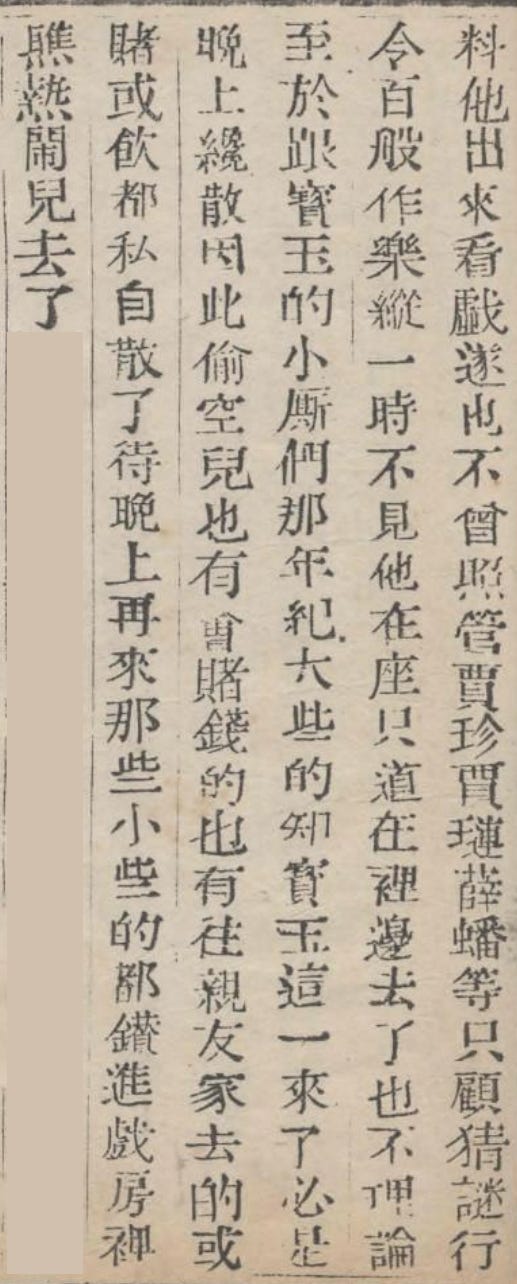 料他出來看戲遂也不曾照管賈珍賈璉薛蟠等只顧猜謎行
令百般作樂縱一時不見他在座只道在裡邊去了也不理論
至於跟寶玉的小厮們那年紀大些的知寶玉這一來了必是
晚上纔散因此偷空兒也有會賭錢的也有往親友家去的或
賭或飲都私自散了待晚上再來那些小些的都鑽進戲房裡
瞧熱鬧兒去了